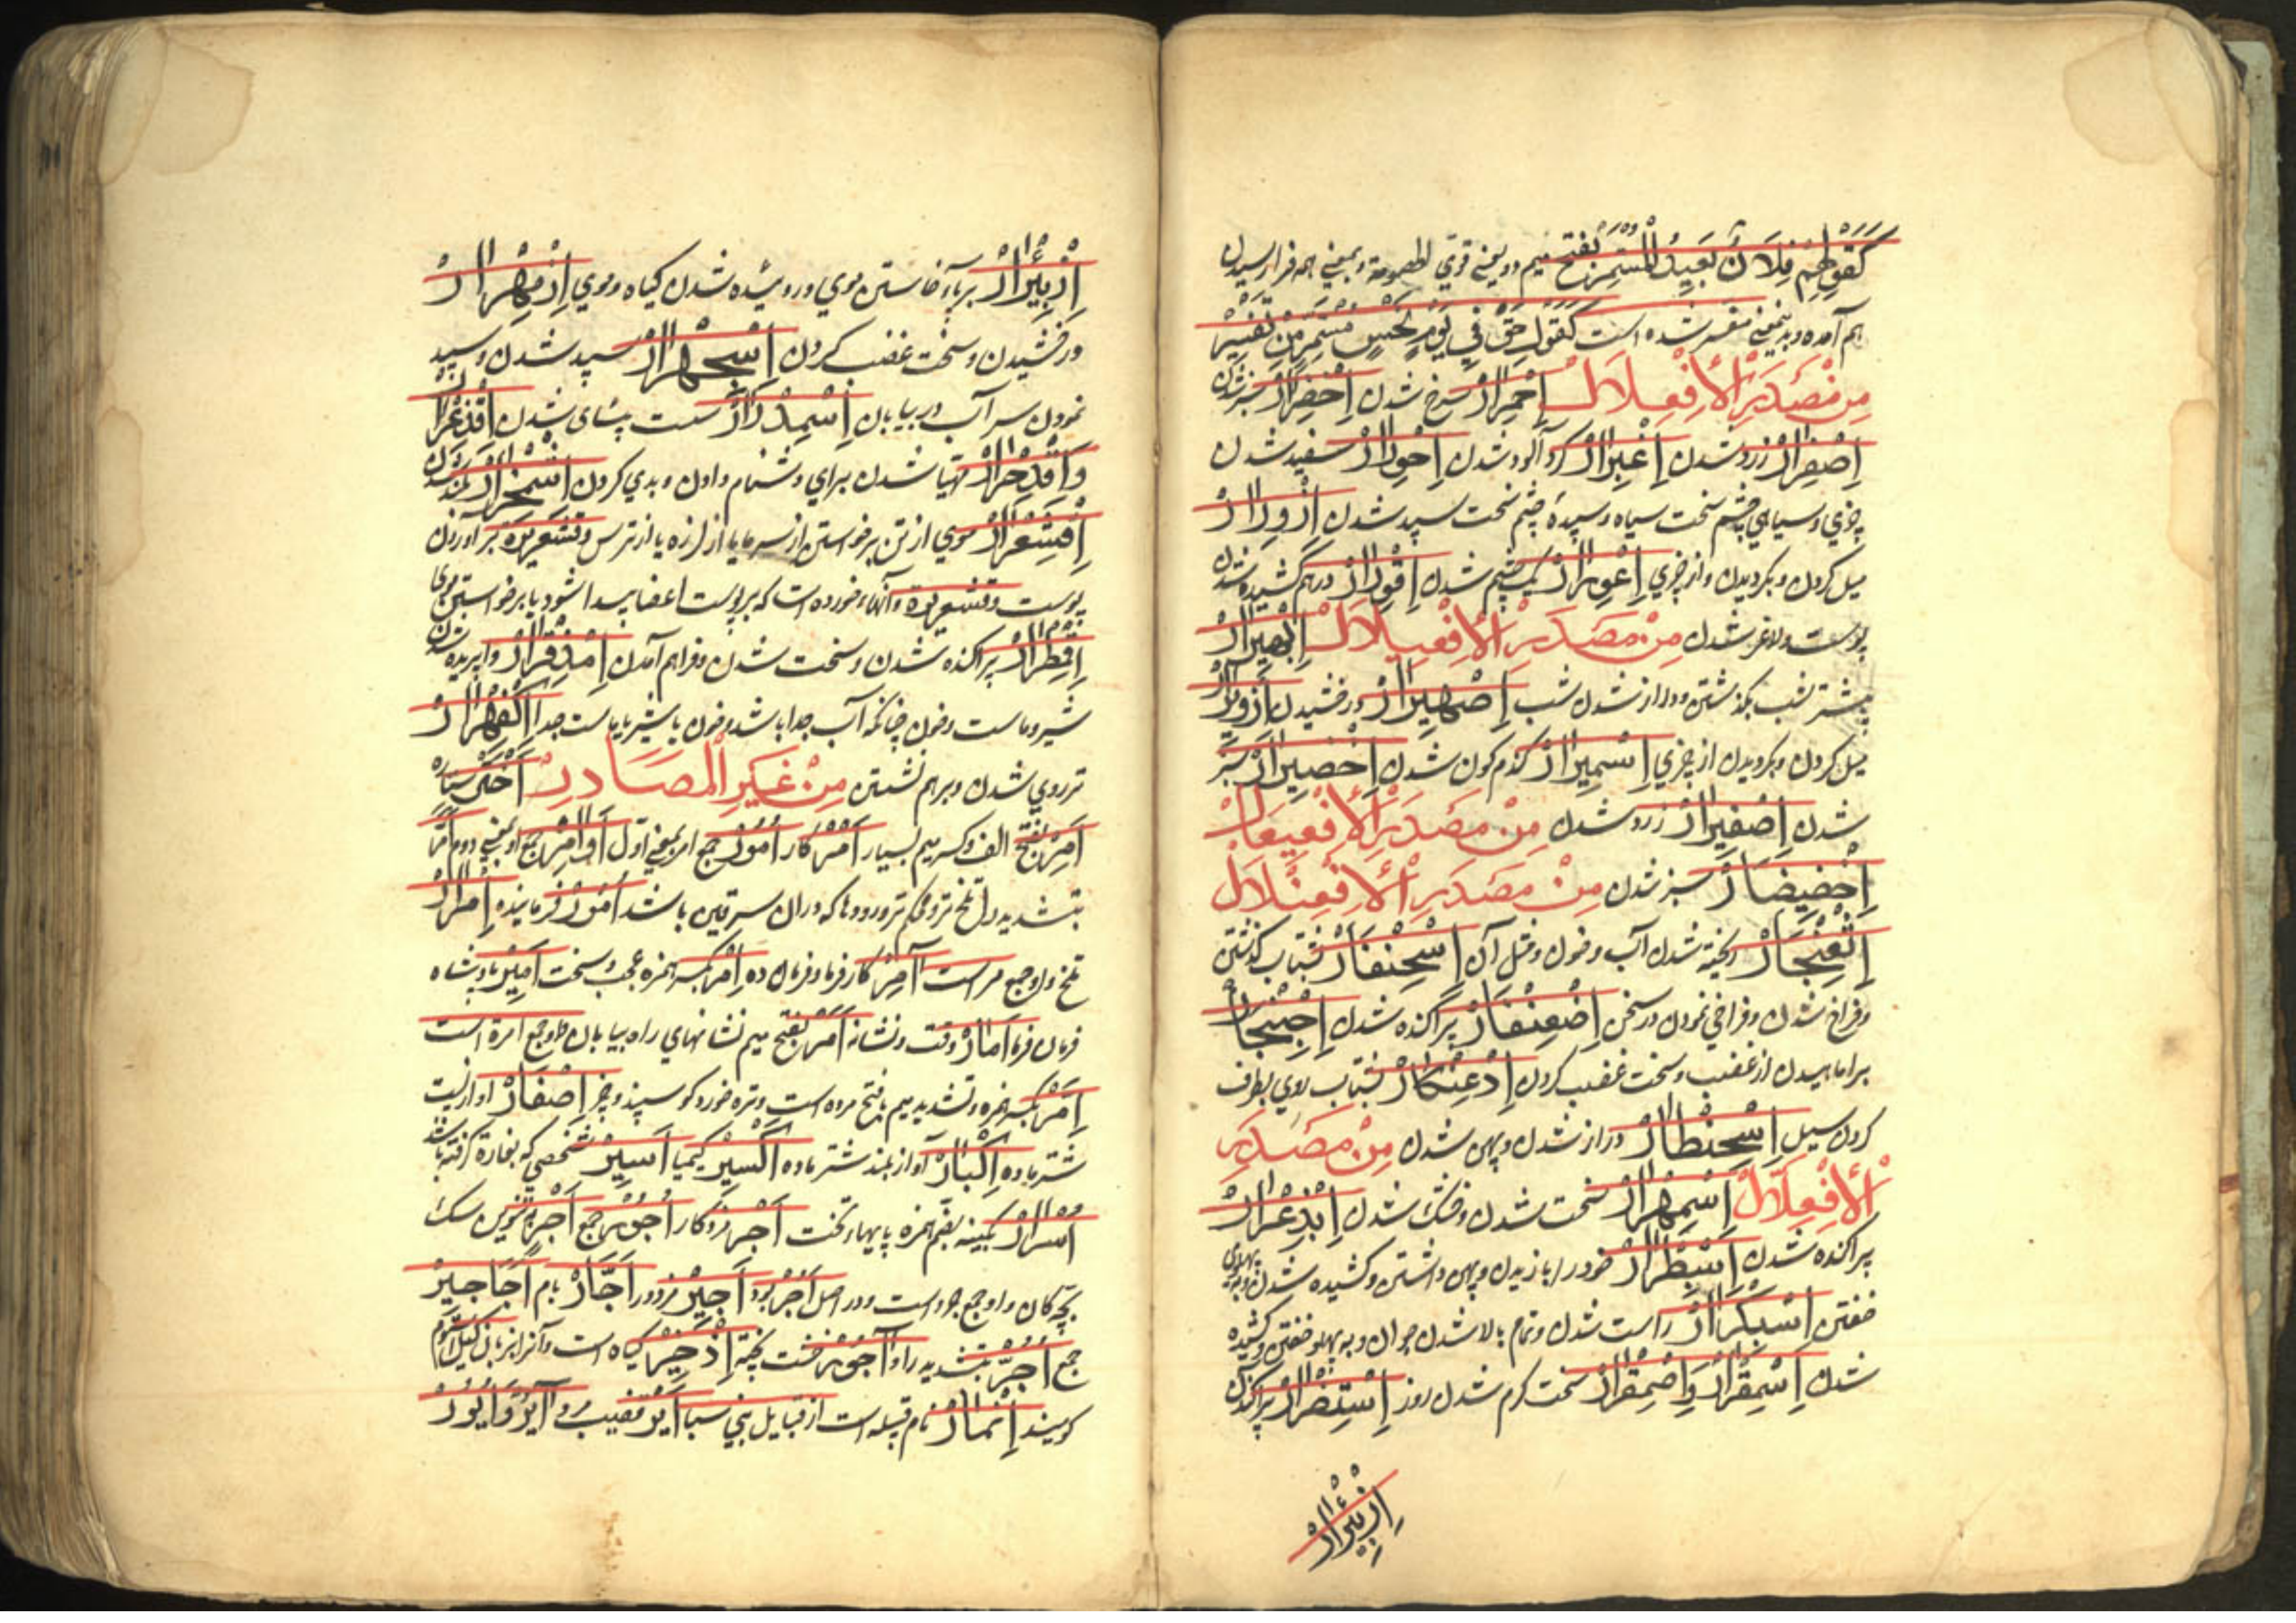 كَقَوْلِهِمْ فُلَانٌ بَعِيدُ الْمُسْتَمَرِّ بفتح میم دو یعنی قوی الخصومة و بمعنی همه فرا رسیدن
هم آمده و بدینمعنی مفسر شده است كَقَوْلِ حَقْ فِي يَوْمِ نَحْسٍ مُسْتَمِرٍّ مِنْ تَفْسِيرِ
مِنْ مَصْدَرِ الْأَفْعِلَالْ اِحْمِرَارْ سرخ شدن اِخْضِرَارْ سبز شدن
اِصْفِرَارْ زرد شدن اِغْبِرَارْ گرد آلود شدن اِحْوِرَارْ سفید شدن
چیزی و سیاهی چشم سخت سیاه و سپیدۀ چشم سخت سپید شدن اِزْوِرَارْ
میل کردن و بگردیدن از چیزی اِعْوِرَارْ یکچشم شدن اِقْوِرَارْ در هم کشیده شدن
پوست و لاغر شدن مِنْ مَصْدَرِ الْأَفْعِيلَالْ اِبْهِيرَارْ
بیشتر شب بگذشتن و دراز شدن شب اِصْهِيرَارْ درفشیدن اِزْوِيرَارْ
میل کردن و بگردیدن از چیزی اِسْمِيرَارْ گندم گون شدن اِخْضِيرَارْ سبز
شدن اِصْفِيرَارْ زرد شدن مِنْ مَصْدَرِ الْأَفْعِيعَالْ
اِخْضِيضَارْ سبز شدن مِنْ مَصْدَرِ الْأَفْعِنْلَالْ
اِثْعِنْجَارْ ریخته شدن آب و خون و مثل آن اِسْحِنْفَارْ شتاب گذشتن
و فراخ شدن و فراخی نمودن در سخن اِضْعِنْفَارْ پراگنده شدن
بر اماهیدن از غضب و سخت غضب کردن اِدْعِنْكَارْ شتاب روی بطرف
کردن سیل اِسْحِنْطَارْ دراز شدن و پهن شدن مِنْ مَصْدَرِ
الْأَفْعِلَّالْ اِسْمِهْرَارْ سخت شدن و خشک شدن اِبْذِعْرَارْ
پراکنده شدن اِسْبِطْرَارْ خود را بازیدن و پهن داشتن و کشیده شدن و بپهلوی
خفتن اِسْبِكْرَارْ راست شدن و تمام بالا شدن جوان و به پهلو خفتن و کشیده
شدن اِسْمِقْرَارْ وَاِصْمِقْرَارْ سخت گرم شدن روز پراکندن
اِزْبِئْرَارْ
اِزْبِئْرَارْ برپا خاستن موی و روئیده شدن گیاه و موی اِزْمِهْرَارْ
درفشیدن و سخت غضب کردن اِسْجِهْرَارْ سپید شدن و سپید
نمودن سراب در بیابان اِسْمِدْرَارْ سست بینای شدن اِقْذِعْرَارْ
وَاِقْذِحْرَارْ مهیا شدن برای دشنام دادن و بدی کردن اِشْمِخْرَارْ بلند شدن
اِقْشِعْرَارْ موی از تن برخواستن از سرما یا از لرزه یا از ترس و قشعریره بر آوردن
پوست و قشعریره دانهاء خورده است که بر پوست اعضا پیدا شود یا برخواستن موی
اِقْمِطْرَارْ پراکنده شدن و سخت شدن و فراهم آمدن اِمْذِقْرَارْ وابریده شدن
شیر و ماست و خون چنانکه آب جدا باشد و خون یا شیر یا ماست جدا اِكْفِهْرَارْ
ترروی شدن و بر هم نشستن مِنْ غَيْرِ الْمَصَادِرْ اَخْتَرْ ستاره
اَمِرْ بفتح الف و کسر میم بسیار اَمْرْ کار اُمُورْ جمع امر بمعنی اول اَوَامِرْ جمع او بمعنی دوم
بتشدید را تلخ تر و محکم تر و رودها که در آن سرقین باشد اَمُورْ فرماینده اَمْرَارْ
تلخ و او جمع مر است آمِرْ کار فرما و فرمان ده اِمْرْ بکسر همزه عجب و سخت اَمِيرْ پادشاه
فرمان فرما اَمَارْ وقت و نشانه اَمَرْ بفتح میم نشانهای راه بیابان و او جمع امرة است
اِمَّرْ بکسر همزه و تشدید میم با فتح مرده است و بره خورد گوسپند و چیز اِصْفَارْ
شتر ماده اِكْبَارْ آواز بلند شتر ماده اِكْسِيرْ کیمیا اَسِيرْ شخصی که بغارة گرفته باشد
اُسْرَارْ کمینه بضم همزه پایهاء تخت اَجْرْ مزد کار اُجُورْ جمع
بچه گان و او جمع جرو است و در اصل اَجْرُ بود اَجِيرْ مزدور اِجَّارْ بام اَجَاجِيرْ
جمع اَجُرّ بتشدید را و آجُورْ خشت پخته اِذْخِرْ گیاه است
گویند اَنْمَارْ نام قبیله است از قبایل بنی سبا اَيْرْ قضیب مرد